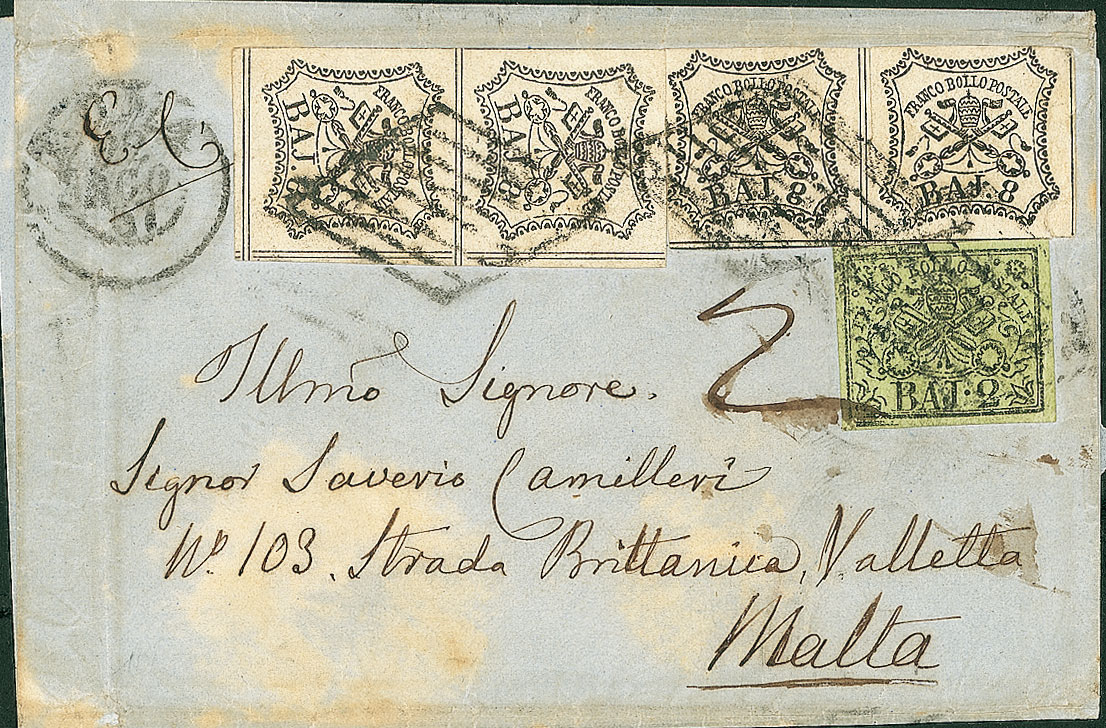 E C.
FRANCO BOLLO POSTALE
BAJ 8
FRANCO BOLLO POSTALE
BAJ 8
FRANCO BOLLO POSTALE
BAJ. 8
FRANCO BOLLO POSTALE
BAJ. 8
FRANCO BOLLO POSTALE
BAJ. 2
2
Illmo Signore.
Signor Saverio Camilleri
No. 103. Strada Brittanica, Valletta
Malta